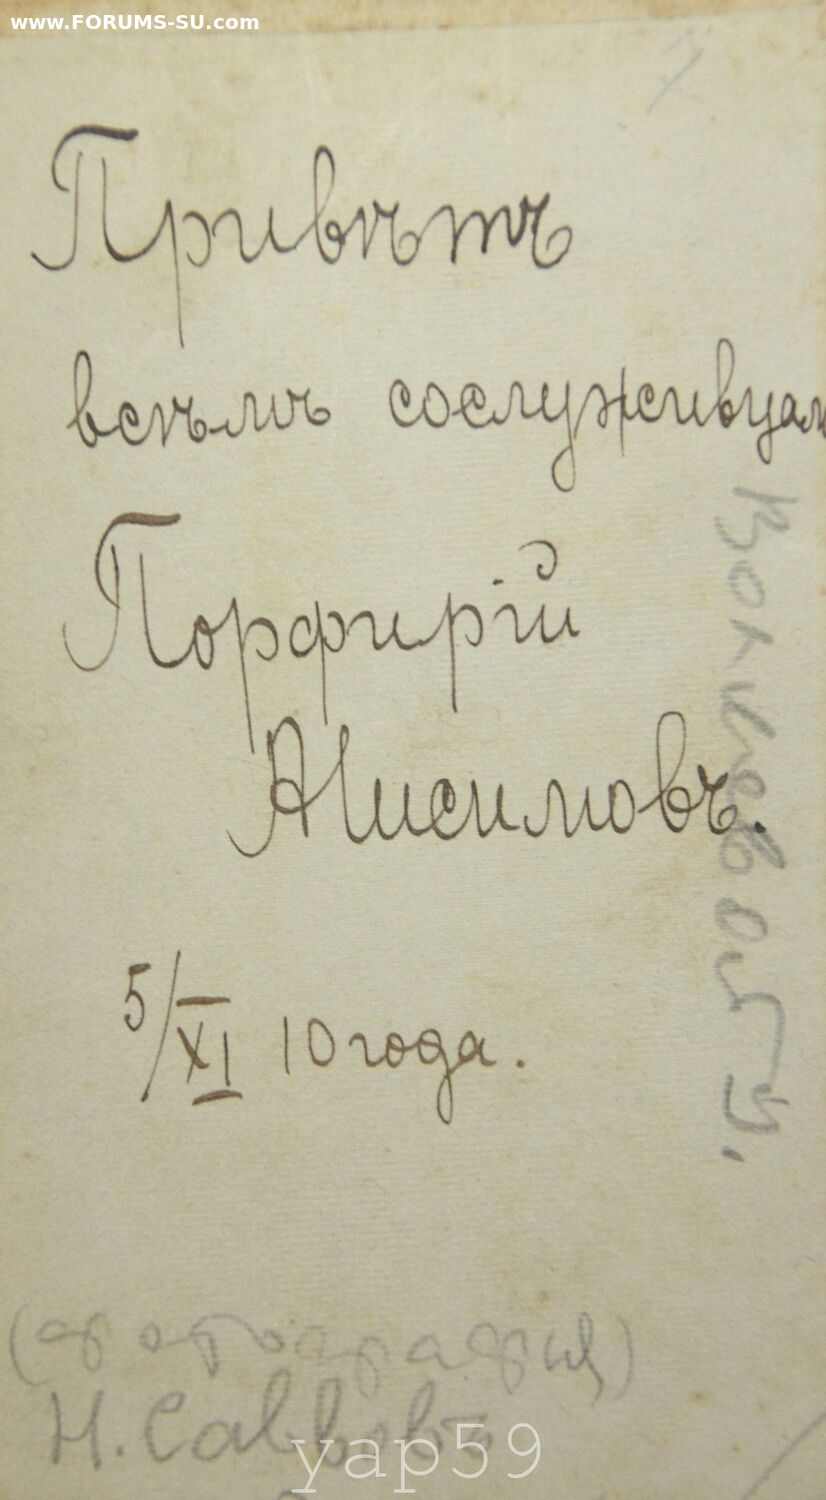 www.FORUMS-SU.com
Привѣтъ
всѣмъ сослуживцам
Порфирій
Анисимовъ.
5/XI 10 года.
(фотография)
Н. Саввовъ
yap59